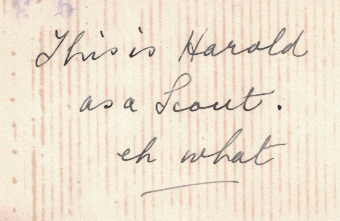 This is Harold
as a Scout.
eh what